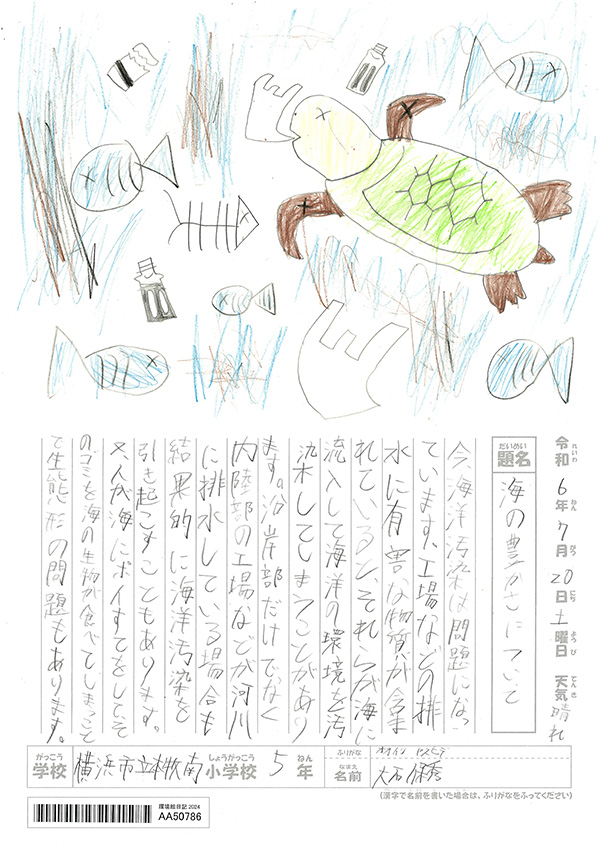 令和6年7月20日土曜日 天気 晴れ
れいわ ねん がつ にち ようび てんき
だいめい
題名 海の豊かさについて
今、海洋汚染は問題になっ
ています。工場などの排
水に有害な物質が含ま
れていると、それらが海に
流入して海洋の環境を汚
染してしまうことがあり
ます。沿岸部だけでなく
内陸部の工場などが河川
に排水している場合も
結果的に海洋汚染を
引き起こすこともあります。
又、人が海にポイすてをしてそ
のゴミを海の生物が食べてしまっ
て生態形の問題もあります。
がっこう しょうがっこう ねん
学校 横浜市立 南 小学校 5 年
ふりがな
なまえ
名前 大石 保秀
(漢字で名前を書いた場合は、ふりがなをふってください)
環境絵日記 2024
AA50786